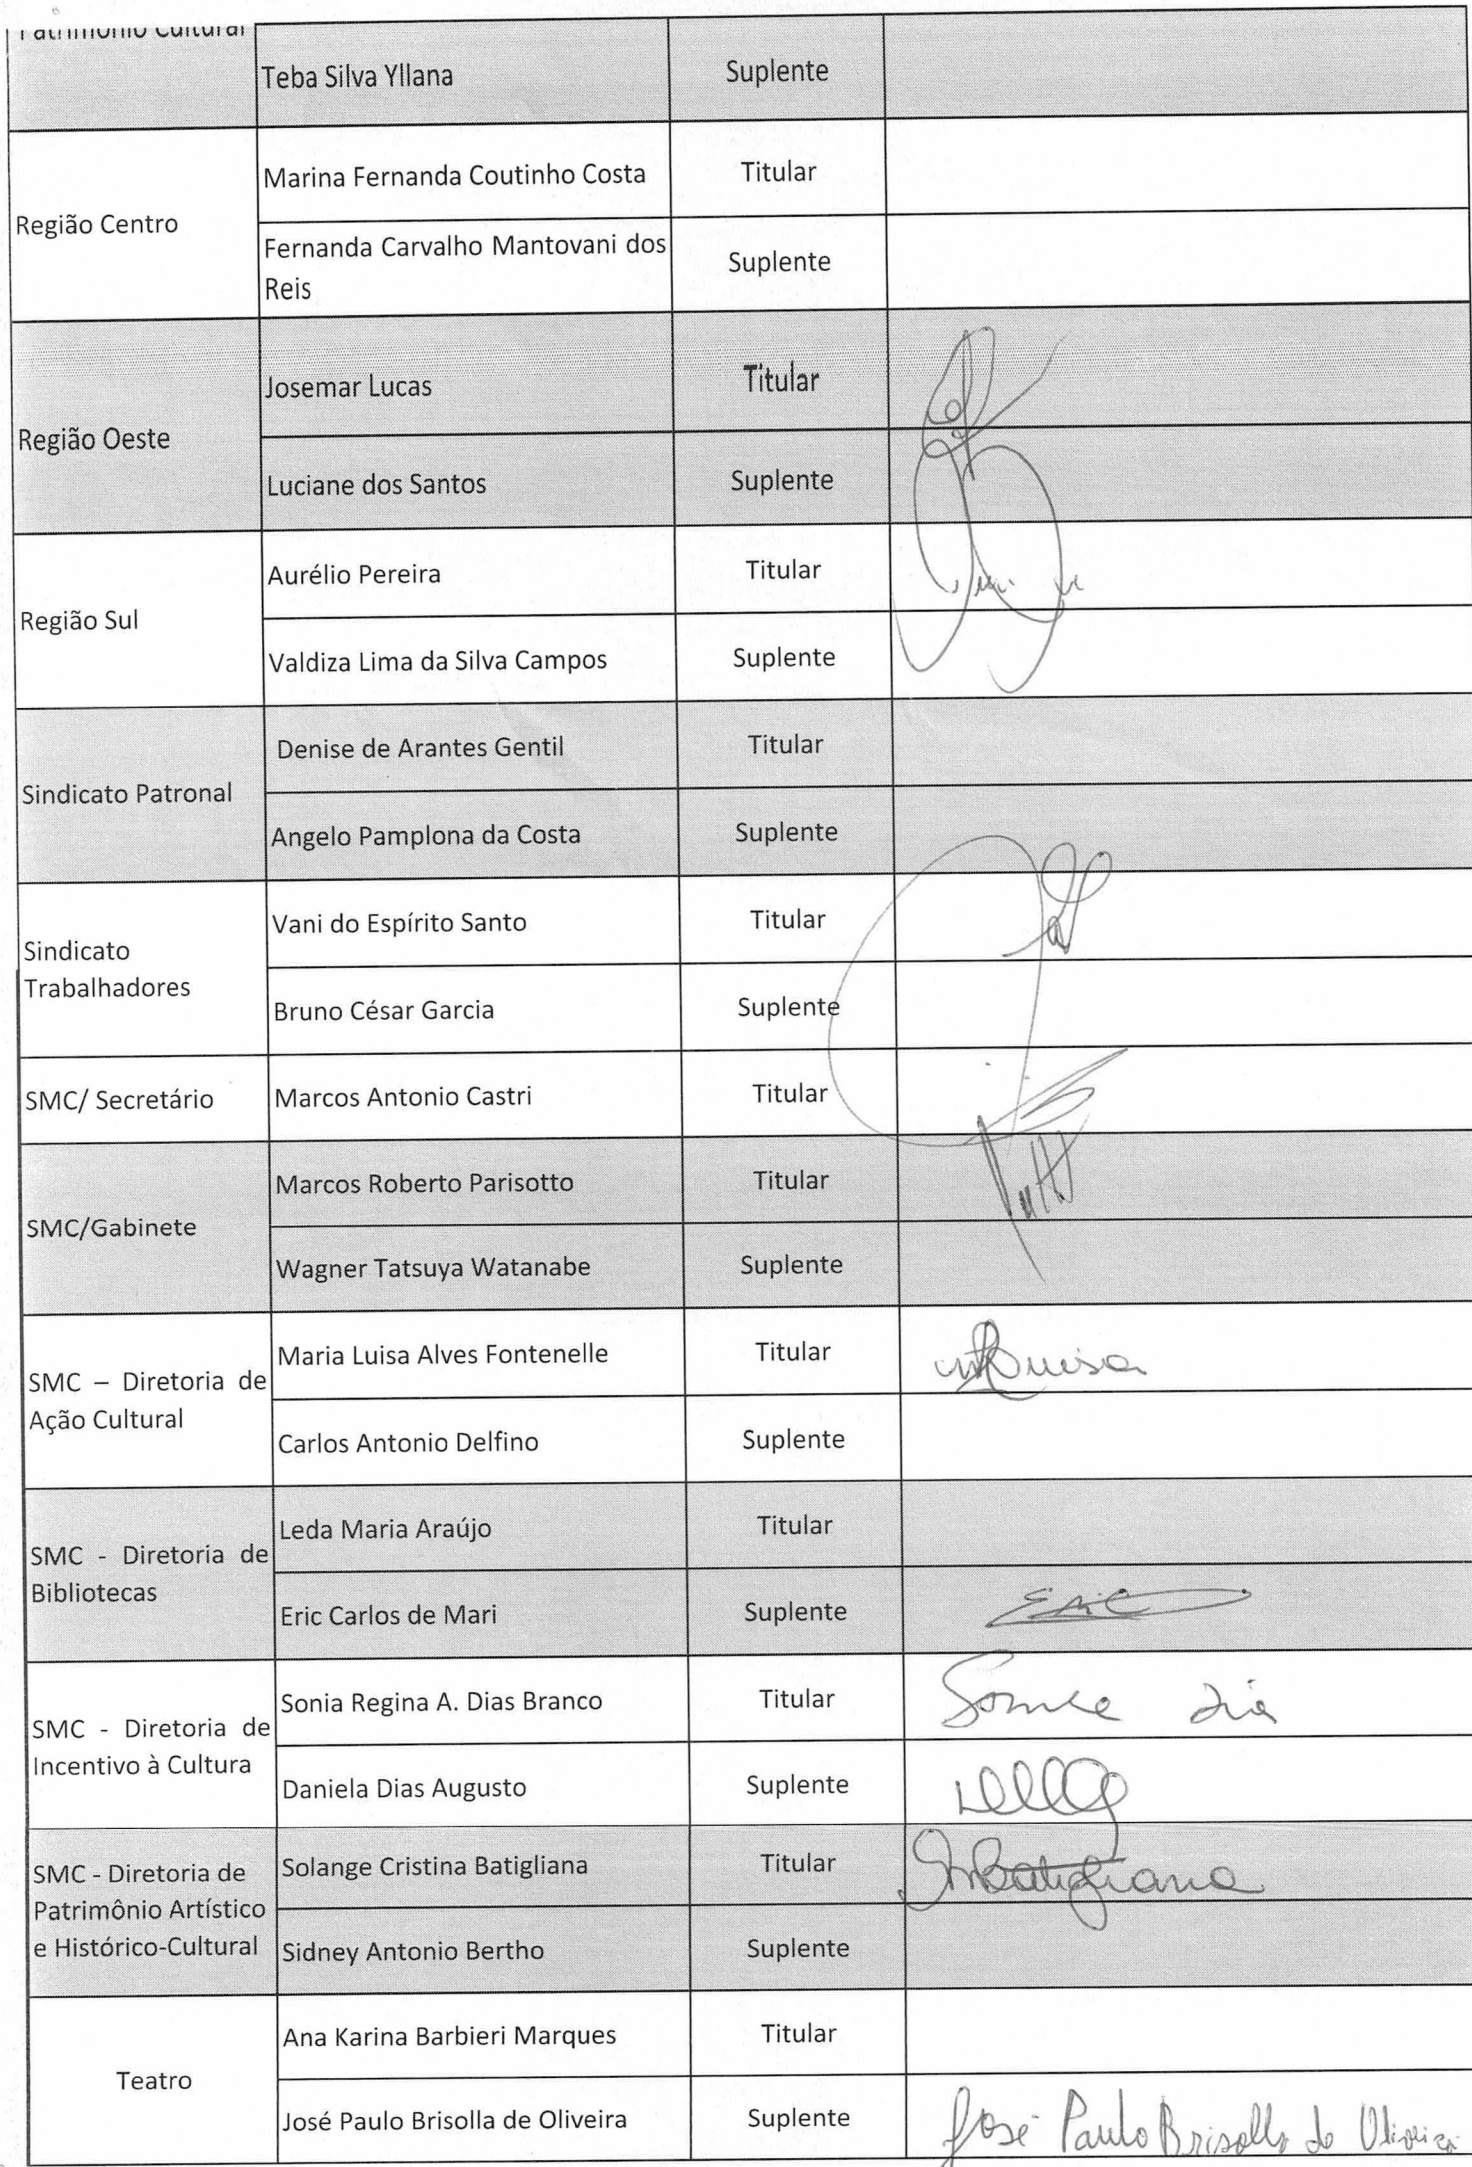 Patrimônio Cultural
Teba Silva Yllana Suplente
Região Centro
Marina Fernanda Coutinho Costa Titular
Fernanda Carvalho Mantovani dos
Reis Suplente
Região Oeste
Josemar Lucas Titular
Luciane dos Santos Suplente
Região Sul
Aurélio Pereira Titular
Valdiza Lima da Silva Campos Suplente
Sindicato Patronal
Denise de Arantes Gentil Titular
Angelo Pamplona da Costa Suplente
Sindicato
Trabalhadores
Vani do Espírito Santo Titular
Bruno César Garcia Suplente
SMC/ Secretário Marcos Antonio Castri Titular
SMC/Gabinete
Marcos Roberto Parisotto Titular
Wagner Tatsuya Watanabe Suplente
SMC – Diretoria de
Ação Cultural
Maria Luisa Alves Fontenelle Titular
Carlos Antonio Delfino Suplente
SMC - Diretoria de
Bibliotecas
Leda Maria Araújo Titular
Eric Carlos de Mari Suplente Eric
SMC - Diretoria de
Incentivo à Cultura
Sonia Regina A. Dias Branco Titular
Daniela Dias Augusto Suplente
SMC - Diretoria de
Patrimônio Artístico
e Histórico-Cultural
Solange Cristina Batigliana Titular Batigliana
Sidney Antonio Bertho Suplente
Teatro
Ana Karina Barbieri Marques Titular
José Paulo Brisolla de Oliveira Suplente José Paulo Brisolla de Oliveira